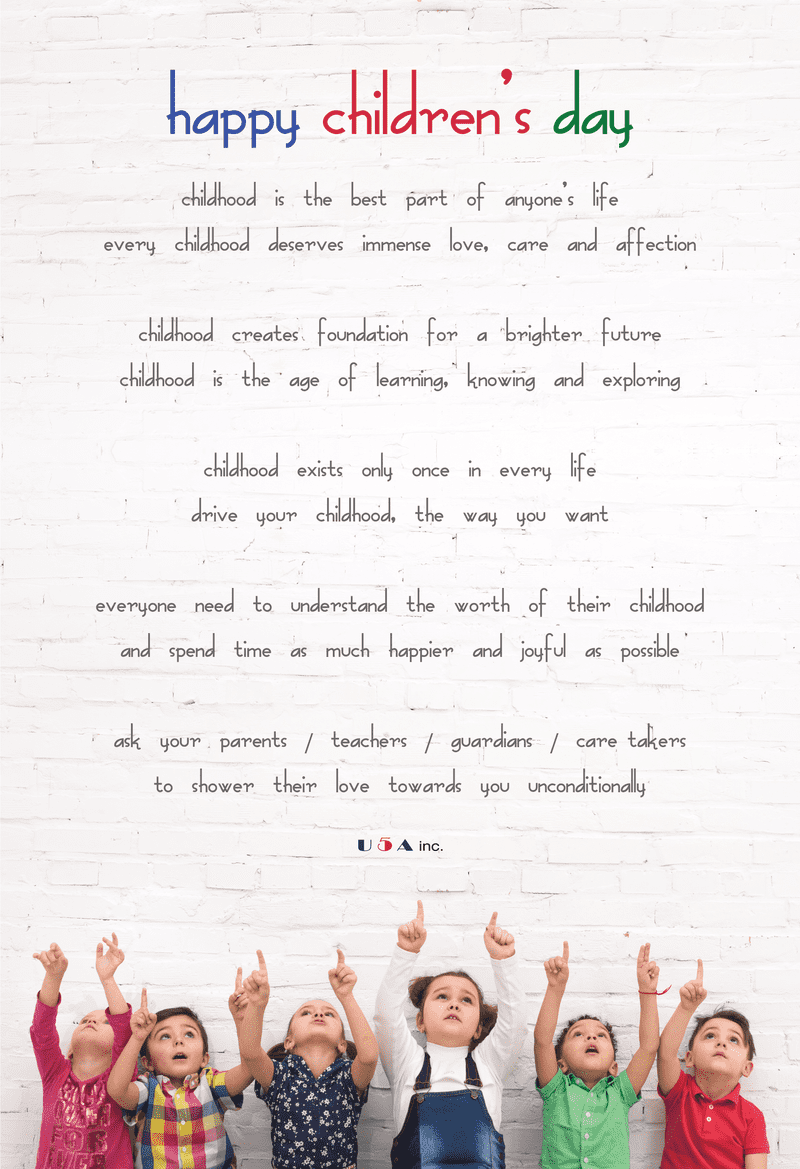 happy children's day
childhood is the best part of anyone's life
every childhood deserves immense love, care and affection
childhood creates foundation for a brighter future
childhood is the age of learning, knowing and exploring
childhood exists only once in every life
drive your childhood, the way you want
everyone need to understand the worth of their childhood
and spend time as much happier and joyful as possible
ask your parents / teachers / guardians / care takers
to shower their love towards you unconditionally
U5A inc.